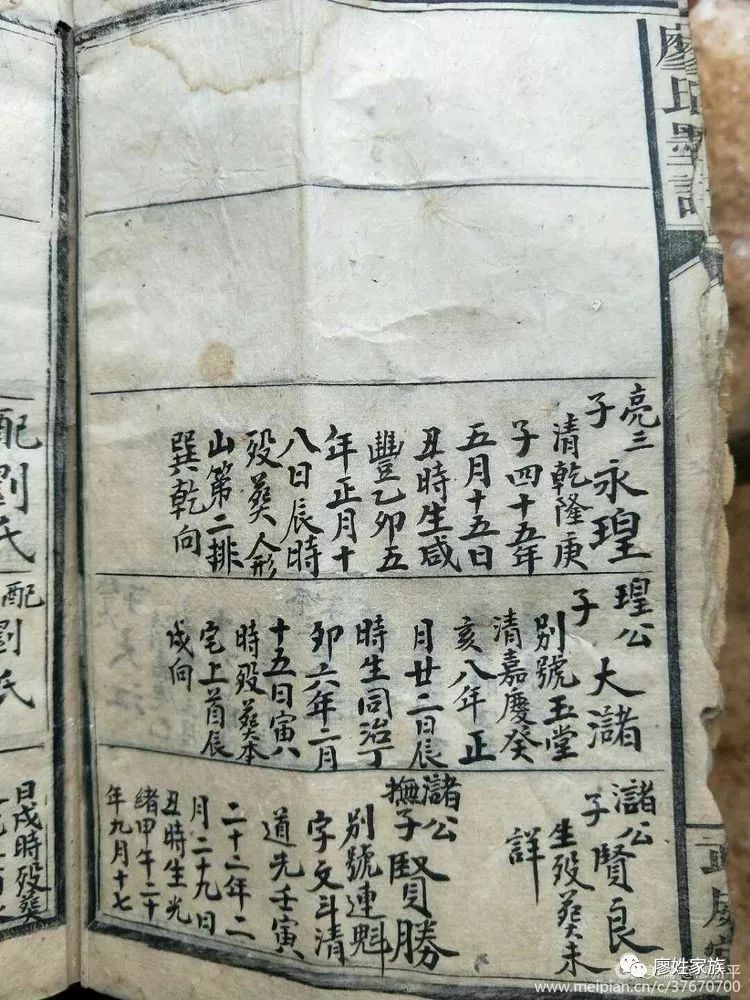 廖氏墨
亮三
子永瑝
清乾隆庚
子四十五年
五月十五日
丑時生咸
豐乙卯五
年正月十
八日辰時
歿葬人形
山第二排
巽乾向
瑝公
子大瀦
別號玉堂
清嘉慶癸
亥八年正
月廿二日辰
時生同治丁
卯六年二月
十五日寅八
時歿葬本
宅上首辰
戌向
瀦公
子賢良
生歿葬未
詳
瀦公
撫子賢勝
別號連魁
字文斗清
道光壬寅
二十二年二
月二十九日
丑時生光
緒甲午二十
年九月十七
配劉氏
配劉氏
日戌時歿葬
廖姓家族
www.meipian.cn/c/37670700